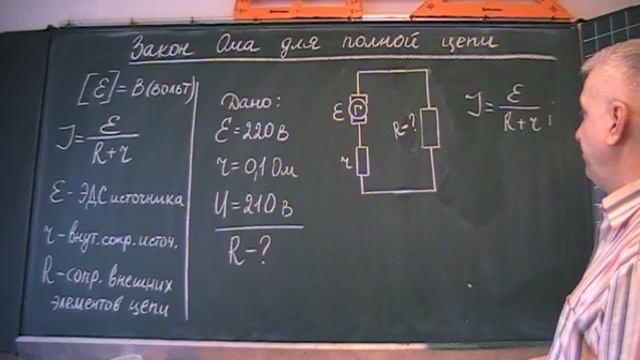 Закон Ома для полной цепи
[Ɛ] = В (вольт)
J = Ɛ / R + r
Ɛ - ЭДС источника
r - внут. сопр. источ.
R - сопр. внешних
элементов цепи
Дано:
Ɛ = 220 в
r = 0,1 Ом
U = 210 в
R - ?
Ɛ
Г
r
R = ?
J = Ɛ / R + r ;